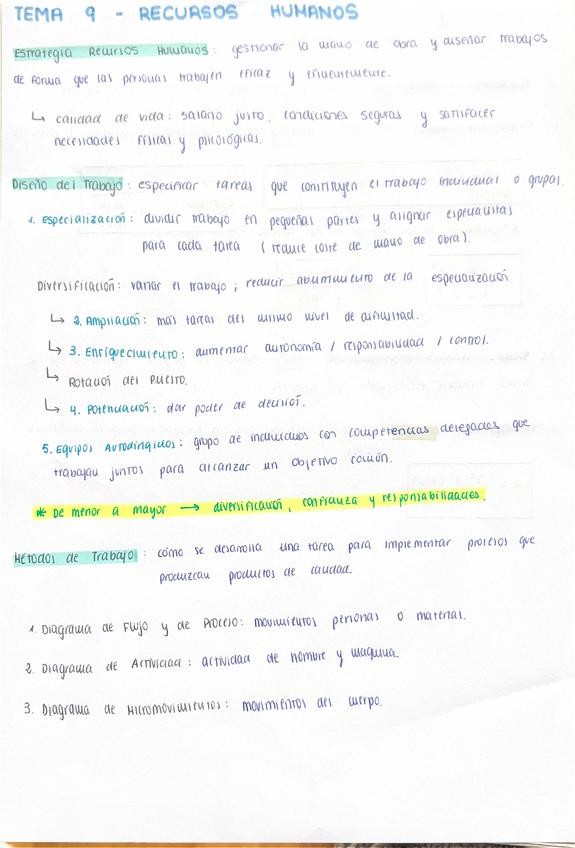 TEMA 9 - RECURSOS HUMANOS
Estrategia Recursos Humanos: gestionar la mano de obra y diseñar trabajos
de forma que las personas trabajen eficaz y eficientemente.
↳ calidad de vida: salario justo, condiciones seguras y satisfacer
necesidades físicas y psicológicas.
Diseño del Trabajo: especificar tareas que constituyen el trabajo individual o grupal.
1. Especialización: dividir trabajo en pequeñas partes y asignar especialistas
para cada tarea (reduce coste de mano de obra).
Diversificación: variar el trabajo; reducir aburrimiento de la especialización
↳ 2. Ampliación: más tareas del mismo nivel de dificultad.
↳ 3. Enriquecimiento: aumentar autonomía / responsabilidad / control.
↳ Rotación del Puesto.
↳ 4. Potenciación: dar poder de decisión.
5. Equipos Autodirigidos: grupo de individuos con competencias delegadas que
trabajan juntos para alcanzar un objetivo común.
* De menor a mayor → diversificación, confianza y responsabilidades.
Métodos de Trabajo: cómo se desarrolla una tarea para implementar procesos que
produzcan productos de calidad.
1. Diagrama de Flujo y de Proceso: movimientos personas o material.
2. Diagrama de Actividad: actividad de hombre y maquina.
3. Diagrama de Micromovimientos: movimientos del cuerpo.